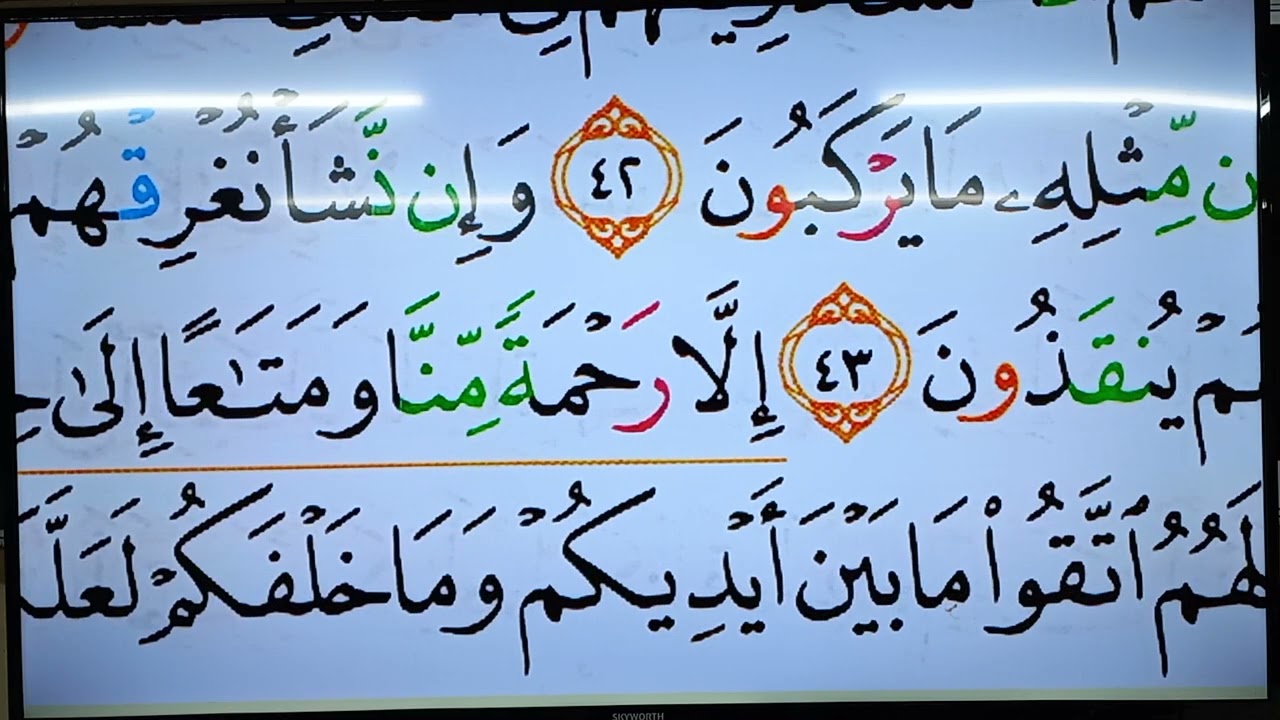 ن مِّثْلِهِۦ مَا يَرْكَبُونَ ٤٢ وَإِن نَّشَأْ نُغْرِقْهُمْ
هُمْ يُنقَذُونَ ٤٣ إِلَّا رَحْمَةً مِّنَّا وَمَتَٰعًا إِلَىٰ
لَهُمُ ٱتَّقُوا۟ مَا بَيْنَ أَيْدِيكُمْ وَمَا خَلْفَكُمْ
SKYWORTH